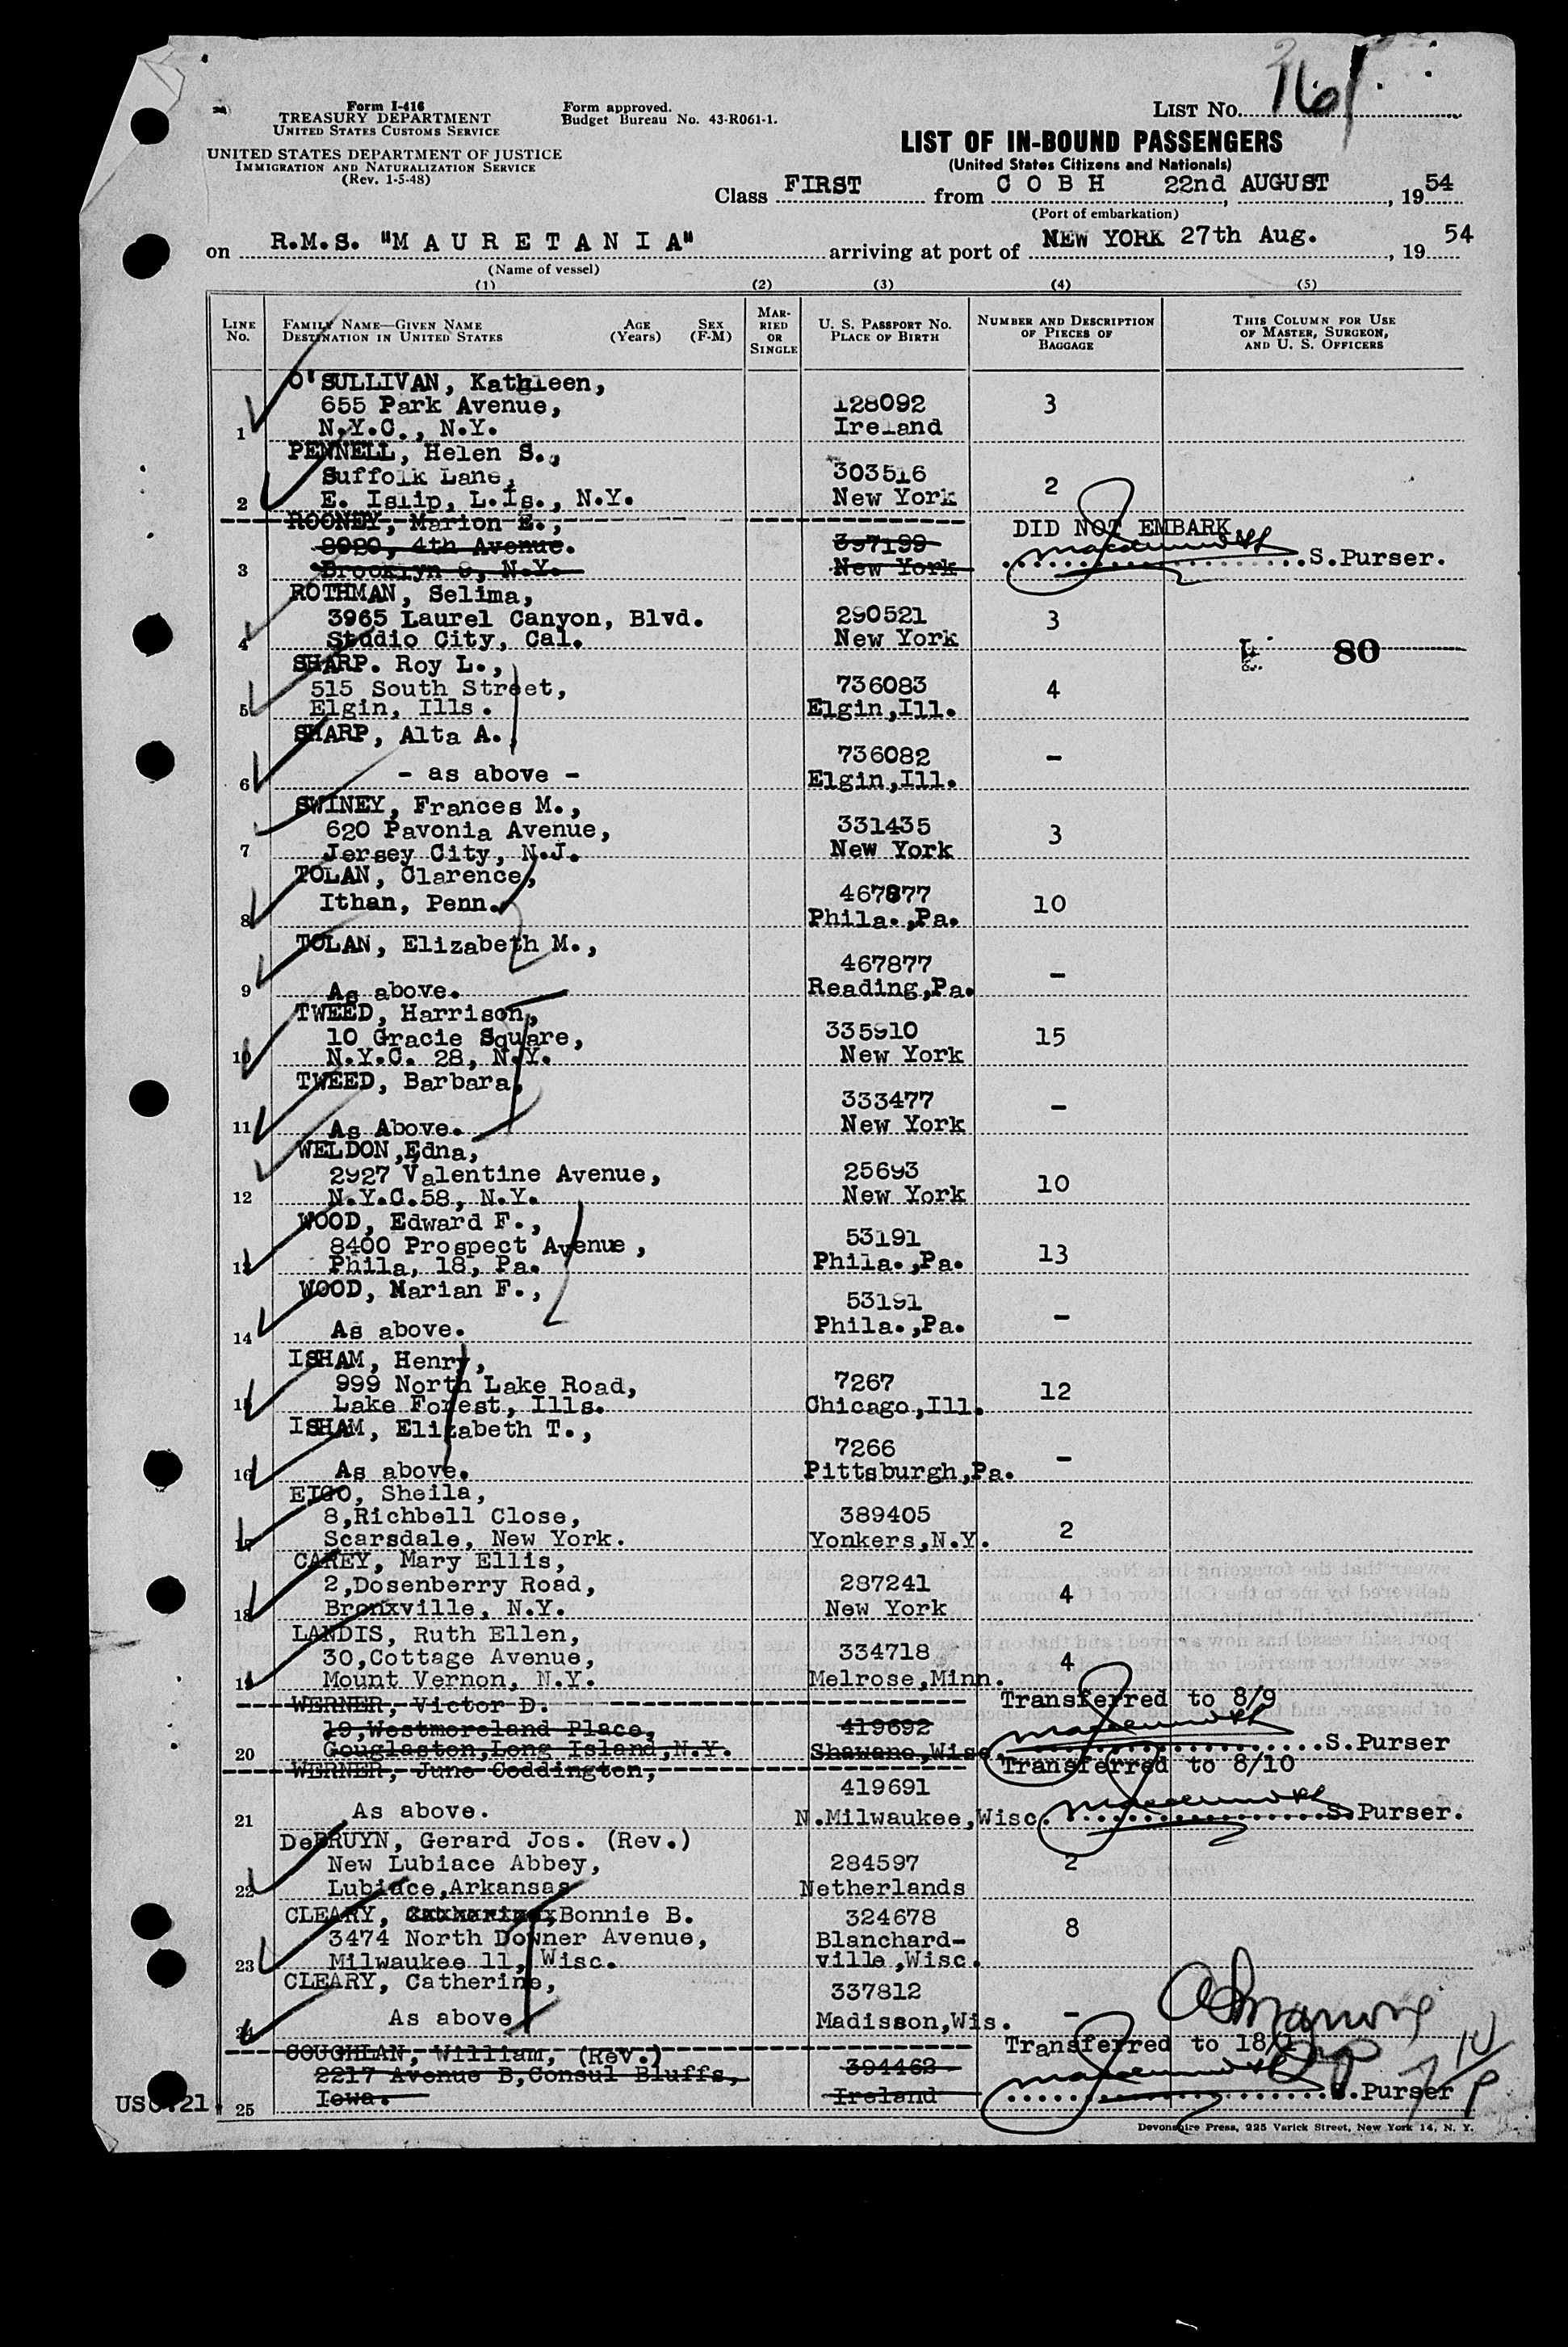 Form I-416
TREASURY DEPARTMENT
UNITED STATES CUSTOMS SERVICE
UNITED STATES DEPARTMENT OF JUSTICE
IMMIGRATION AND NATURALIZATION SERVICE
(Rev. 1-5-48)
Form approved.
Budget Bureau No. 43-R061-1.
LIST No. 161
LIST OF IN-BOUND PASSENGERS
(United States Citizens and Nationals)
Class FIRST from C O B H 22nd, AUGUST, 1954
(Port of embarkation)
on R.M.S. "M A U R E T A N I A" arriving at port of NEW YORK 27th Aug., 19 54
(Name of vessel)
(1) (2) (3) (4) (5)
LINE No.
FAMILY NAME—GIVEN NAME
DESTINATION IN UNITED STATES
AGE (Years)
SEX (F-M)
MARRIED OR SINGLE
U. S. PASSPORT No.
PLACE OF BIRTH
NUMBER AND DESCRIPTION OF PIECES OF BAGGAGE
THIS COLUMN FOR USE OF MASTER, SURGEON, AND U. S. OFFICERS
O'SULLIVAN, Kathleen,
655 Park Avenue, 128092 3
1 N.Y.C., N.Y. Ireland
PENNELL, Helen S.,
Suffolk Lane, 303516 2
2 E. Islip, L.Is., N.Y. New York
ROONEY, Marion E., DID NOT EMBARK
8020, 4th Avenue. 397199
3 Brooklyn 9, N.Y. New York S.Purser.
ROTHMAN, Selima,
3965 Laurel Canyon, Blvd. 290521 3
4 Studio City, Cal. New York 80
SHARP. Roy L.,
515 South Street, 736083 4
5 Elgin, Ills. Elgin,Ill.
SHARP, Alta A.,
736082 -
6 - as above - Elgin,Ill.
SWINEY, Frances M.,
620 Pavonia Avenue, 331435 3
7 Jersey City, N.J. New York
TOLAN, Clarence,
Ithan, Penn. 467877 10
8 Phila.,Pa.
TOLAN, Elizabeth M.,
467877 -
9 As above. Reading,Pa.
TWEED, Harrison,
10 Gracie Square, 335910 15
10 N.Y.C. 28, N.Y. New York
TWEED, Barbara,
333477 -
11 As Above. New York
WELDON,Edna,
2927 Valentine Avenue, 25693 10
12 N.Y.C.58, N.Y. New York
WOOD, Edward F.,
8400 Prospect Avenue, 53191 13
13 Phila, 18, Pa. Phila.,Pa.
WOOD, Marian F.,
53191 -
14 As above. Phila.,Pa.
ISHAM, Henry,
999 North Lake Road, 7267 12
15 Lake Forest, Ills. Chicago,Ill.
ISHAM, Elizabeth T.,
7266 -
16 As above. Pittsburgh,Pa.
EIGO, Sheila,
8,Richbell Close, 389405 2
17 Scarsdale, New York. Yonkers,N.Y.
CAREY, Mary Ellis,
2,Dosenberry Road, 287241 4
18 Bronxville, N.Y. New York
LANDIS, Ruth Ellen,
30,Cottage Avenue, 334718 4
19 Mount Vernon, N.Y. Melrose,Minn.
WERNER, Victor D. Transferred to 8/9
19,Westmoreland Place, 419692
20 Gouglaston,Long Island,N.Y. Shawano,Wisc. S.Purser
WERNER, June Coddington, Transferred to 8/10
419691
21 As above. N.Milwaukee,Wisc. S.Purser.
DeBRUYN, Gerard Jos. (Rev.)
New Lubiace Abbey, 284597 2
22 Lubiace,Arkansas Netherlands
CLEARY, Catherine, Bonnie B. 324678 8
3474 North Downer Avenue, Blanchard-
23 Milwaukee 11, Wisc. ville,Wisc.
CLEARY, Catherine, 337812
24 As above Madisson,Wis. -
COUGHLAN, William, (Rev.) Transferred to 18/1
2217 Avenue B,Consul Bluffs, 394462
25 Iowa. Ireland S.Purser
Devonshire Press, 225 Varick Street, New York 14, N. Y.